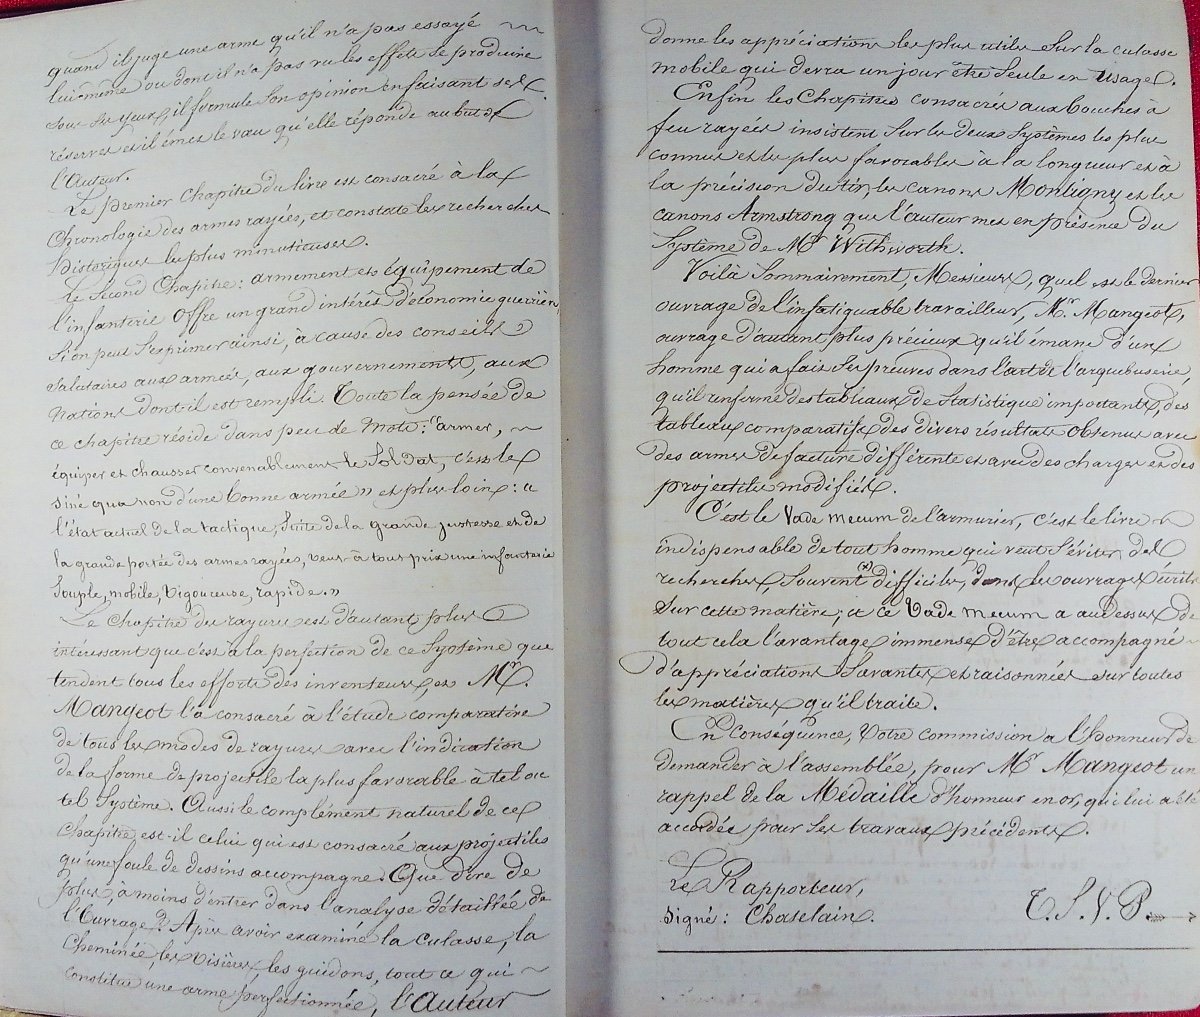 quand il juge une arme qu'il n'a pas essayé
lui-même ou dont il n'a pas vu les effets se produire
sous ses yeux, il formule son opinion en faisant ses
réserves et il émet le vœu qu'elle réponde au but de
l'auteur.
Le premier Chapitre du livre est consacré à la
Chronologie des armes rayées, et constate les recherches
historiques les plus minutieuses.
Le Second Chapitre: armement et équipement de
l'infanterie offre un grand intérêt d'économie guerrière,
si on peut s'exprimer ainsi, à cause des conseils
salutaires aux armées, aux gouvernements, aux
nations dont il est rempli. Toute la pensée de
ce chapitre réside dans peu de mots: "armer,
équiper et chausser convenablement le Soldat, c'est le
sine qua non d'une bonne armée" et plus loin: "
l'état actuel de la tactique, suite de la grande justesse et de
la grande portée des armes rayées, veut à tout prix une infanterie
souple, mobile, vigoureuse, rapide."
Le Chapitre des rayures est d'autant plus
intéressant que c'est à la perfection de ce Système que
tendent tous les efforts des inventeurs, et Mr.
Mangeot l'a consacré à l'étude comparative
de tous les modes de rayures avec l'indication
de la forme de projectile la plus favorable à tel ou
tel Système. Aussi le complément naturel de ce
Chapitre est-il celui qui est consacré aux projectiles
qu'une foule de dessins accompagne. Que dire de
plus, à moins d'entrer dans l'analyse détaillée de
l'Ouvrage? Après avoir examiné la culasse, la
Cheminée, les visières, les guidons, tout ce qui
constitue une arme perfectionnée, l'auteur
donne les appréciations les plus utiles sur la culasse
mobile qui devra un jour être seule en usage.
Enfin les Chapitres consacrés aux bouches à
feu rayées insistent sur les deux Systèmes les plus
connus et les plus favorables à la longueur et à
la précision du tir, les canons Montigny et les
canons Armstrong que l'auteur met en présence du
Système de Mr Withworth.
Voilà Sommairement, Messieurs, quel est le dernier
ouvrage de l'infatiguable travailleur, Mr. Mangeot,
ouvrage d'autant plus précieux qu'il émane d'un
homme qui a fait ses preuves dans l'art de l'arquebuserie,
qu'il renferme des tableaux de Statistique importants, des
tableaux comparatifs des divers résultats obtenus avec
des armes de facture différente et avec des charges et des
projectiles modifiés.
C'est le Vade mecum de l'armurier, c'est le livre
indispensable de tout homme qui veut s'éviter des
recherches, souvent (x) difficiles, dans les ouvrages écrits
sur cette matière; et ce Vade mecum a au dessus de
tout cela l'avantage immense d'être accompagné
d'appréciations savantes et raisonnées sur toutes
les matières qu'il traite.
En Conséquence, Votre commission a l'honneur de
demander à l'assemblée, pour Mr Mangeot un
rappel de la Médaille d'honneur en or, qui lui a été
accordée pour ses travaux précédents.
Le Rapporteur,
Signé: Chatelain.
T.S.V.P.